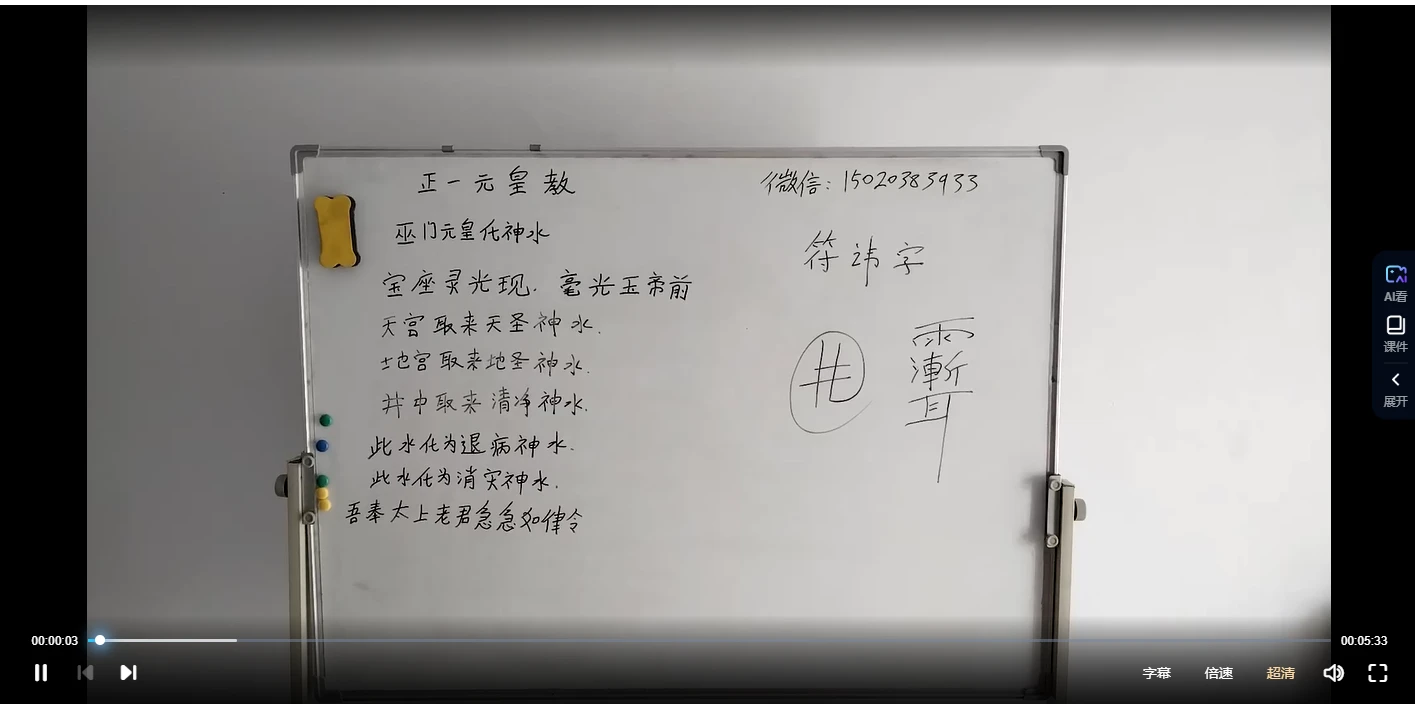 正一元皇教
微信：15020383933
巫门元皇化神水
符讳字
宝座灵光现．毫光玉帝前
天宫取来天圣神水．
地宫取来地圣神水．
井中取来清净神水．
此水化为退病神水．
此水化为消灾神水．
吾奉太上老君急急如律令
AI看
课件
展开
00:00:03
00:05:33
字幕
倍速
超清